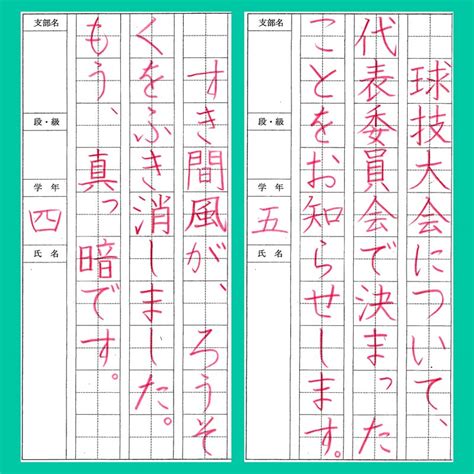 球技大会について、
代表委員会で決まった
ことをお知らせします。
支部名
段・級
学年
五
氏名
すき間風が、ろうそ
くをふき消しました。
もう、真っ暗です。
支部名
段・級
学年
四
氏名